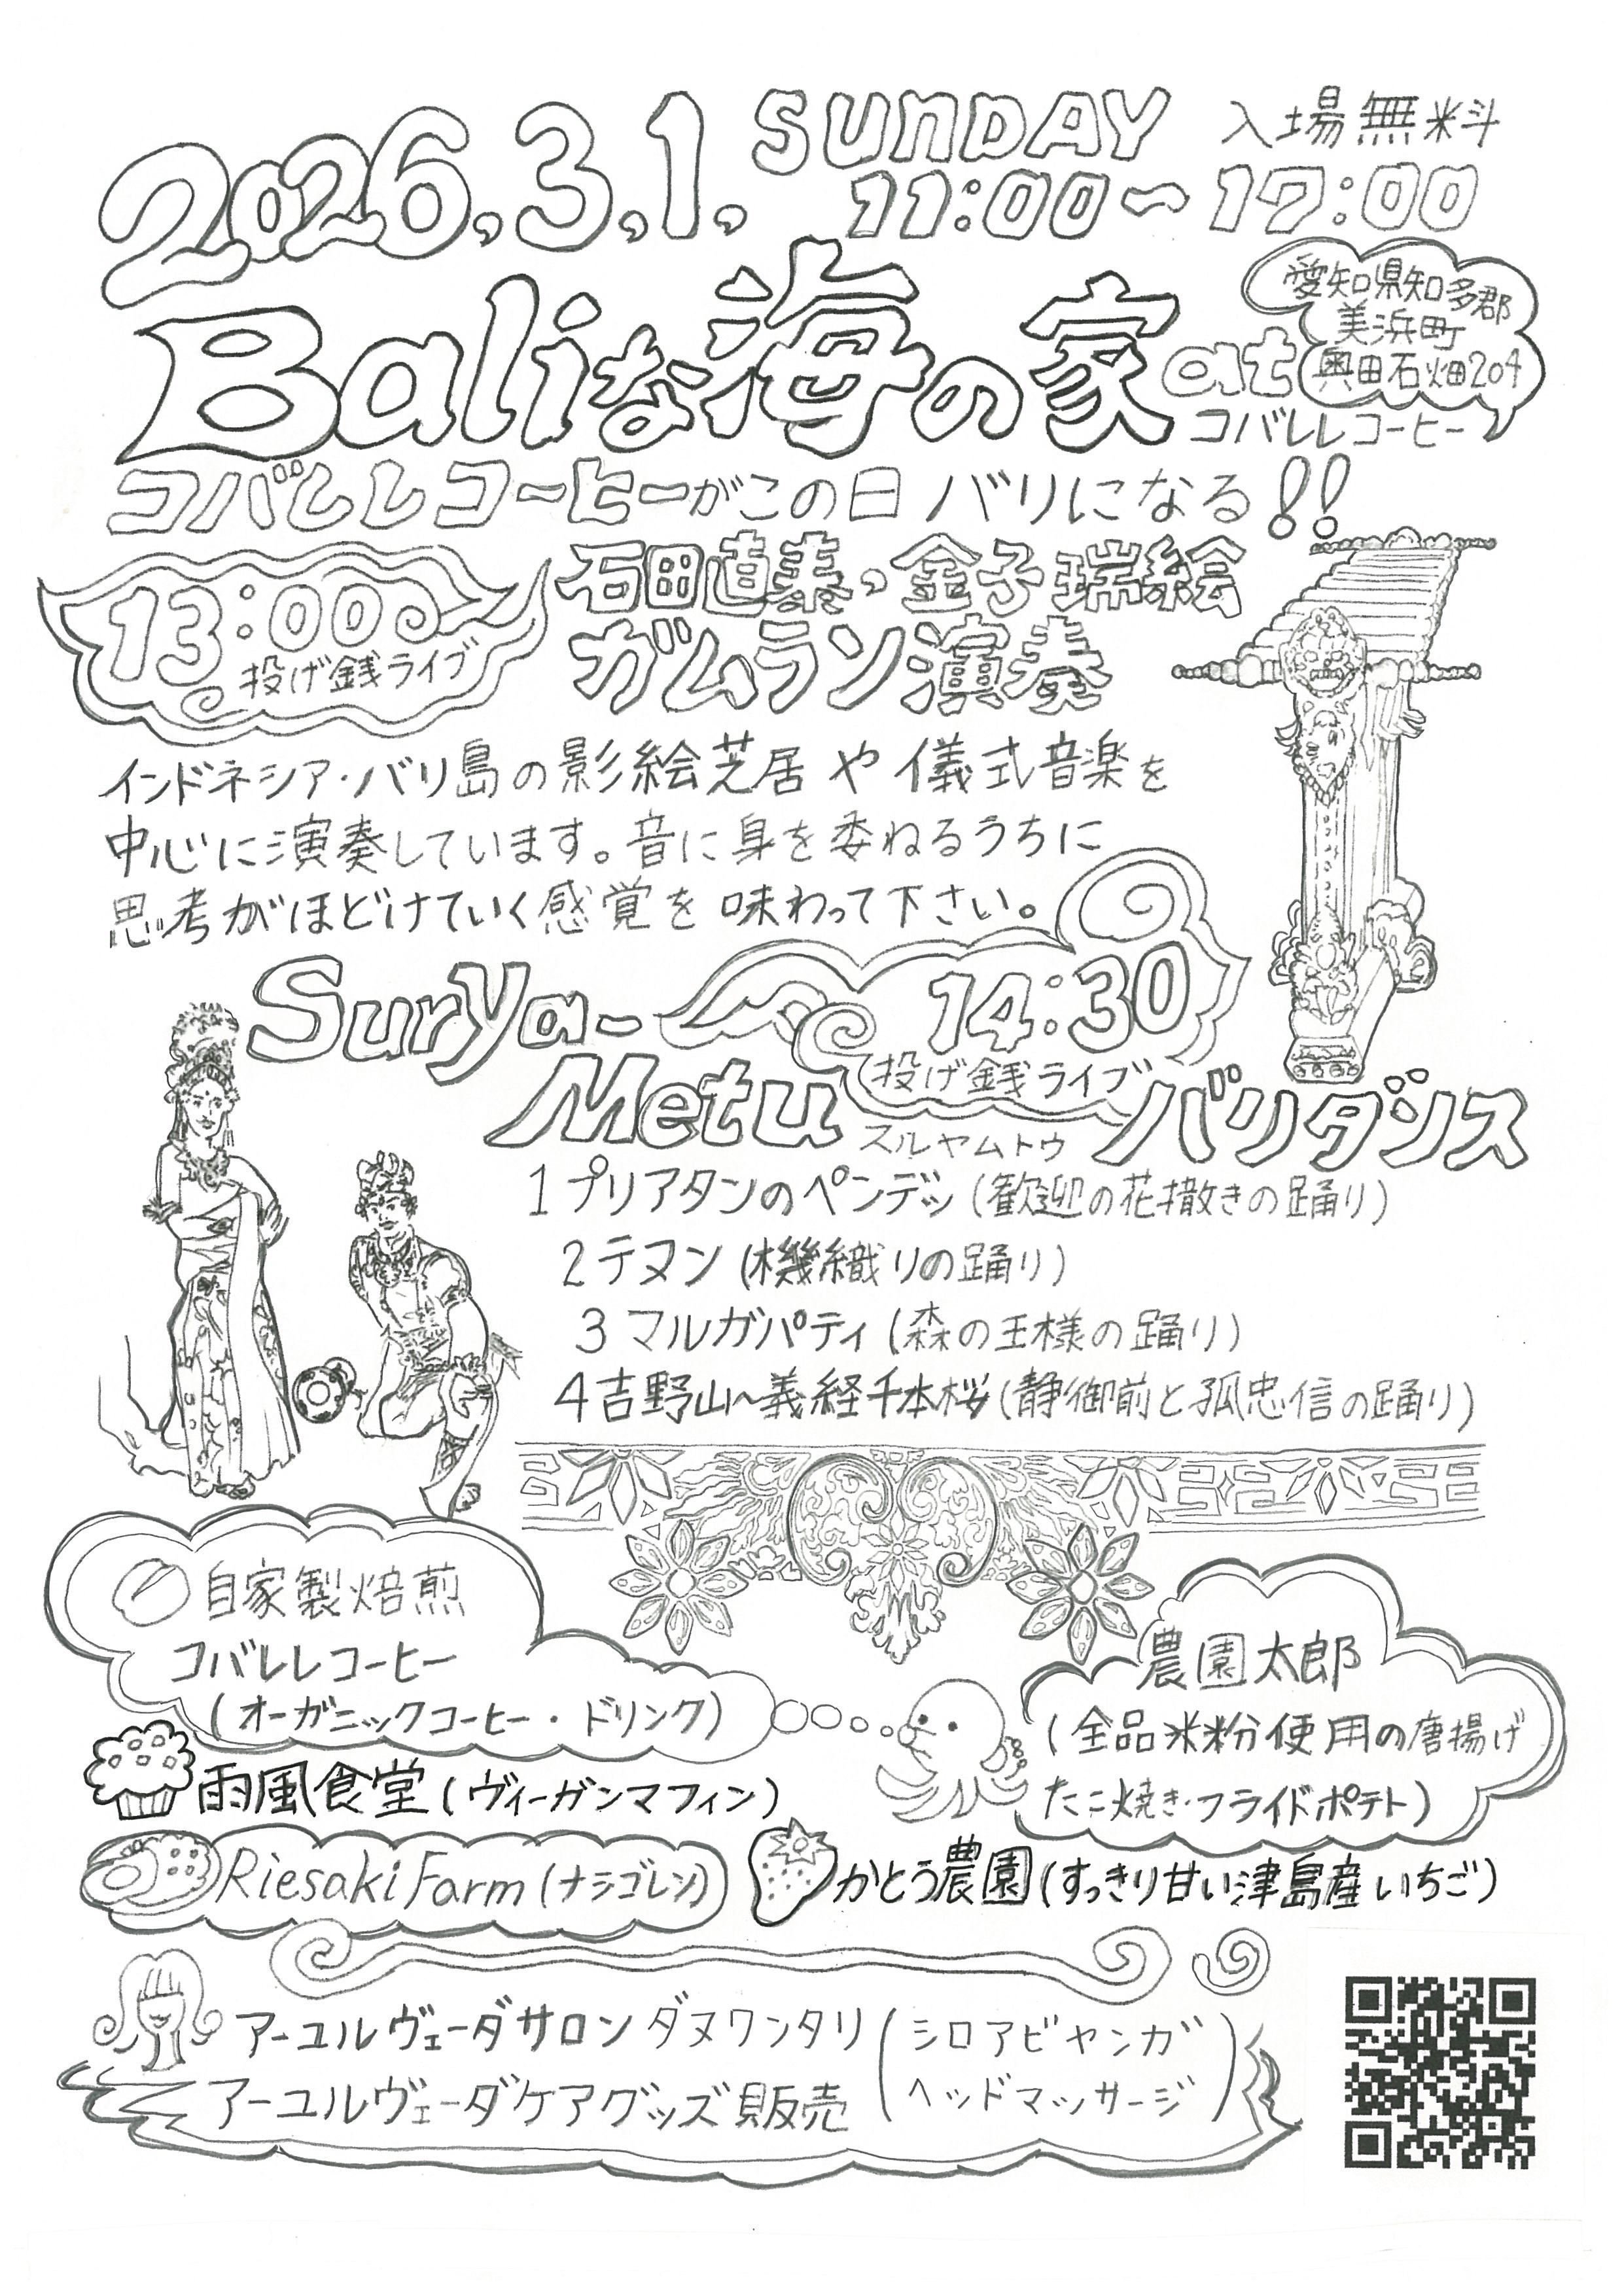 2026.3.1. SUNDAY 入場無料
11:00〜17:00
Baliな海の家 at
愛知県知多郡
美浜町
奥田石畑204
コバレレコーヒー
コバレレコーヒーがこの日 バリになる!!
13:00
投げ銭ライブ
石田直泰・金子瑞絵
ガムラン演奏
インドネシア・バリ島の影絵芝居や儀式音楽を
中心に演奏しています。音に身を委ねるうちに
思考がほどけていく感覚を味わって下さい。
Surya-
Metu
スルヤムトゥ
14:30
投げ銭ライブ
バリダンス
1 プリアタンのペンデッ(歓迎の花撒きの踊り)
2 テヌン(機織りの踊り)
3 マルガパティ(森の王様の踊り)
4 吉野山〜義経千本桜(静御前と孤忠信の踊り)
自家製焙煎
コバレレコーヒー
(オーガニックコーヒー・ドリンク)
農園太郎
(全品米粉使用の唐揚げ
たこ焼き・フライドポテト)
雨風食堂(ヴィーガンマフィン)
Riesaki Farm(ナシゴレン)
かとう農園(すっきり甘い津島産いちご)
アーユルヴェーダサロン ダヌワンタリ
アーユルヴェーダケアグッズ販売
(シロアビヤンガ
ヘッドマッサージ)